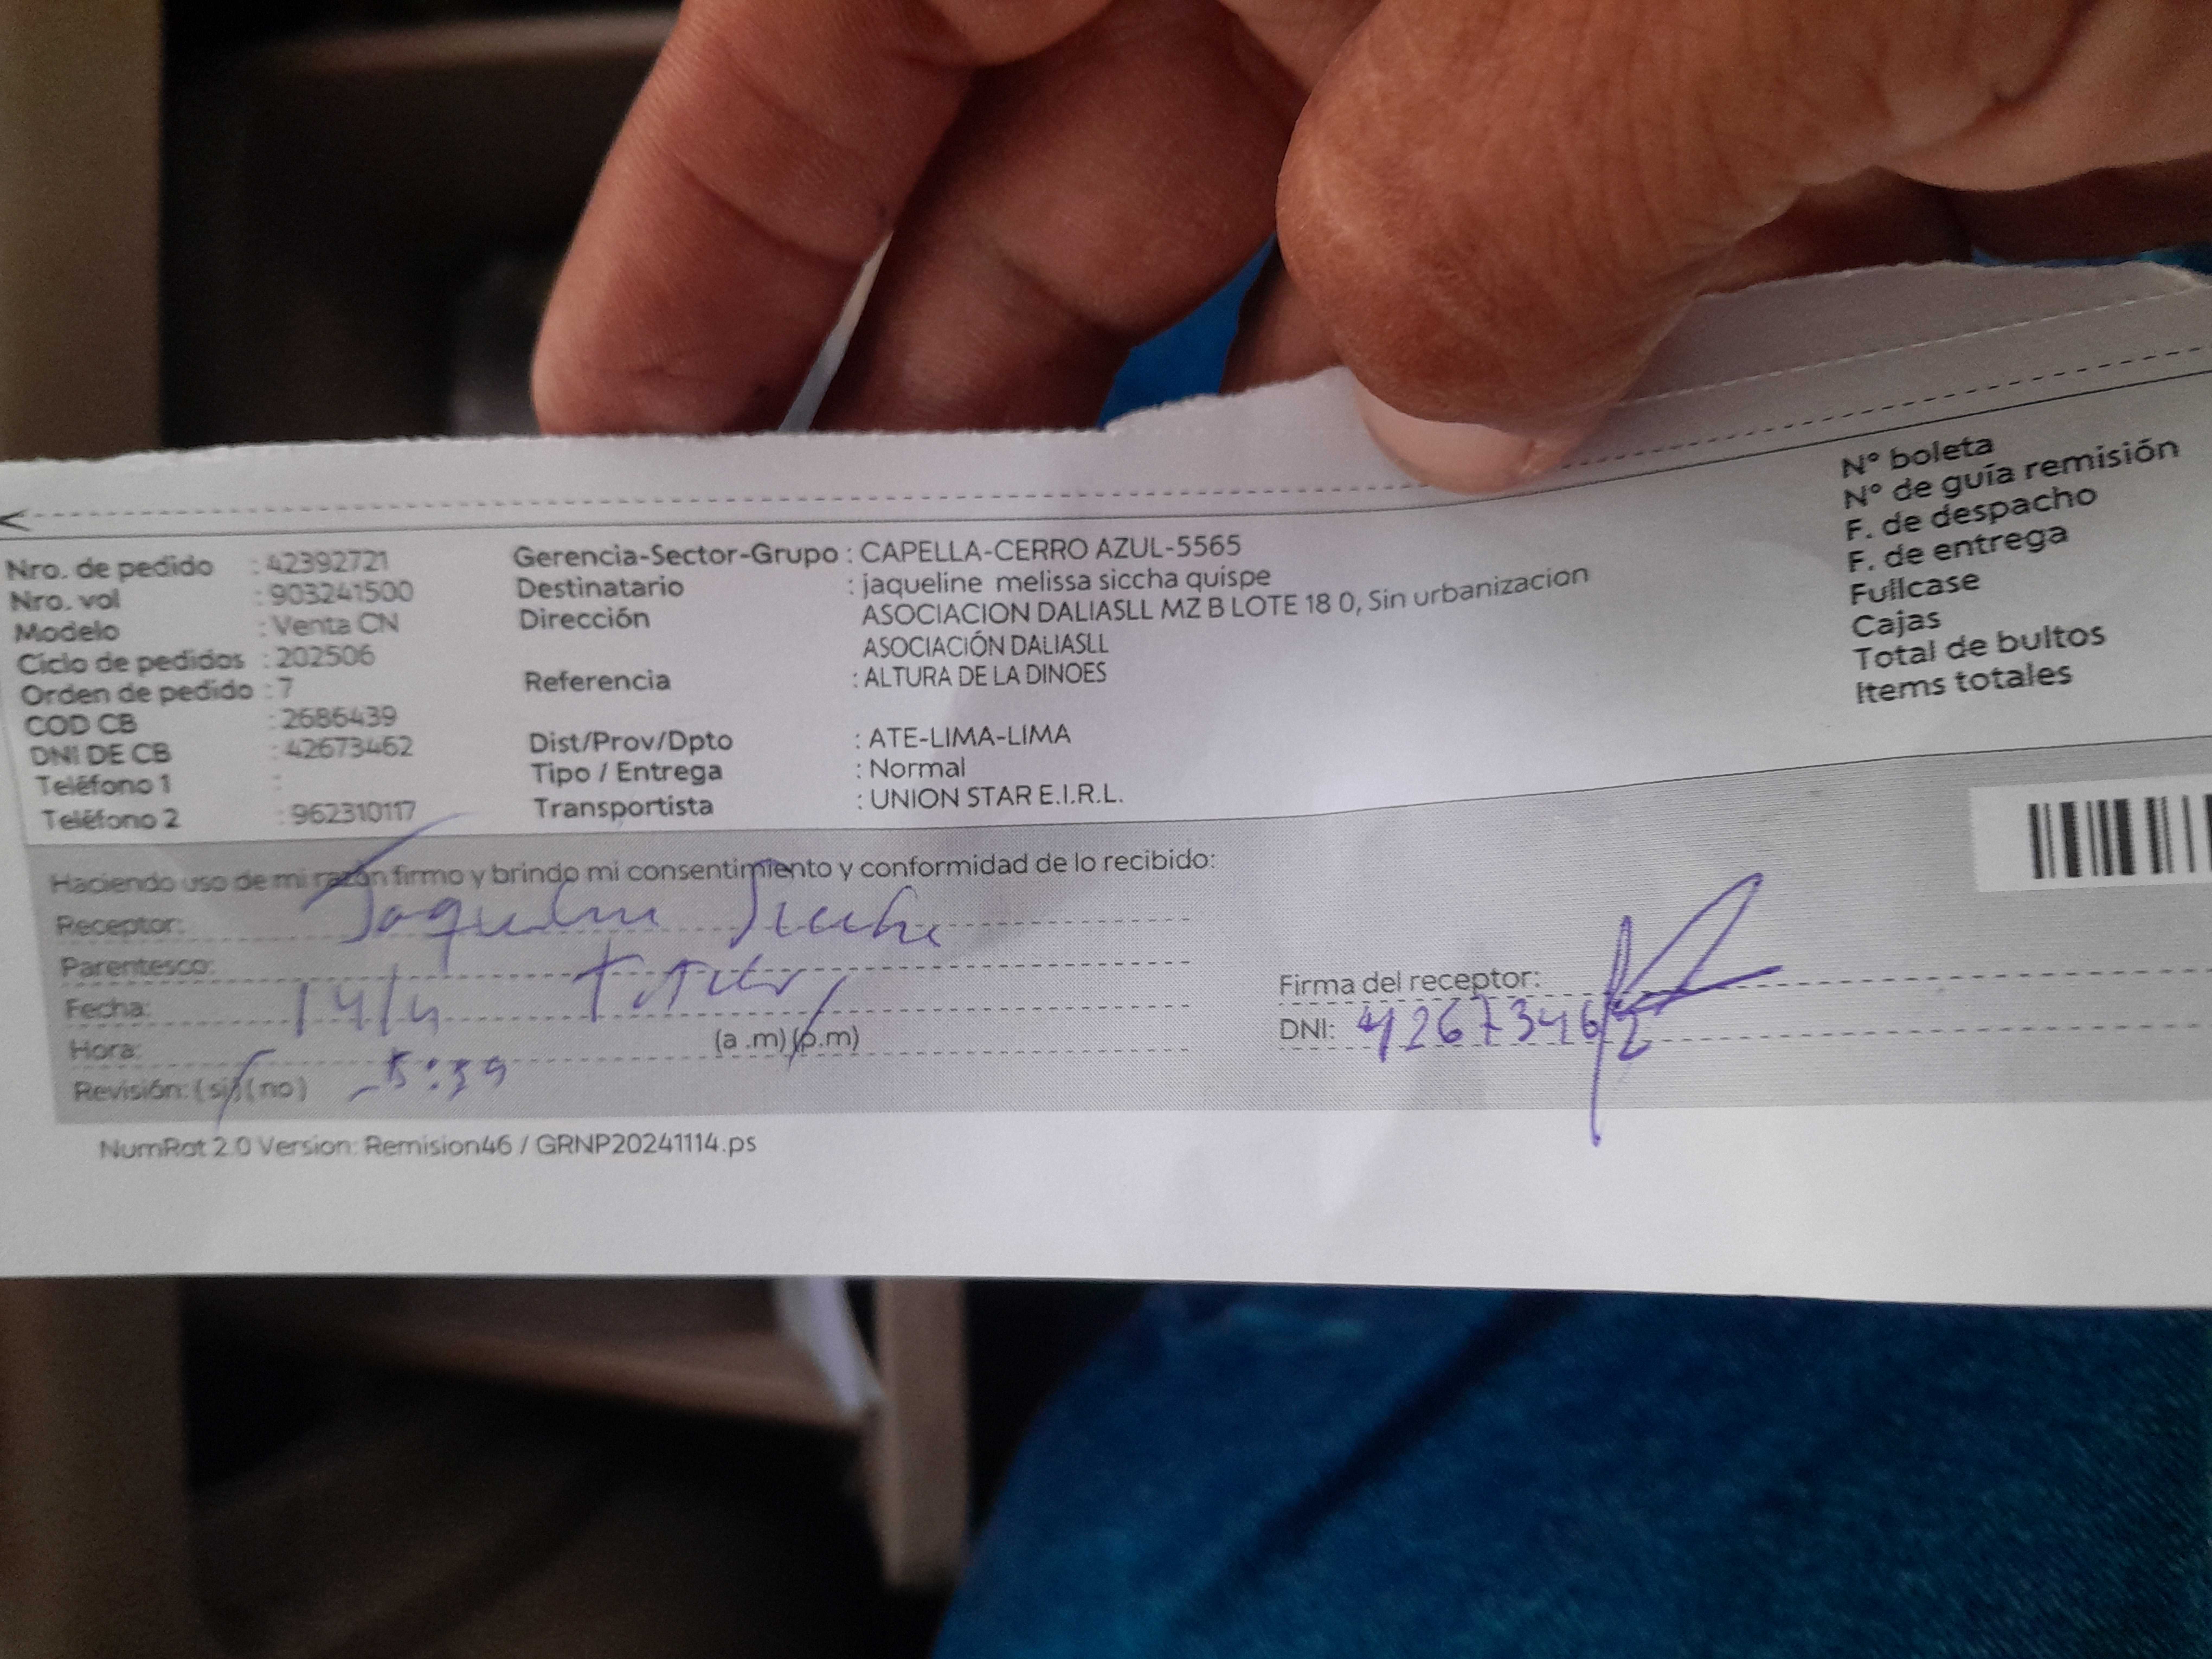 Nro. de pedido : 42392721
Nro. vol : 903241500
Modelo : Venta CN
Ciclo de pedidos : 202506
Orden de pedido : 7
COD CB : 2686439
DNI DE CB : 42673462
Teléfono 1 :
Teléfono 2 : 962310117
Gerencia-Sector-Grupo : CAPELLA-CERRO AZUL-5565
Destinatario : jaqueline melissa siccha quispe
Dirección ASOCIACION DALIASLL MZ B LOTE 18 0, Sin urbanizacion
ASOCIACIÓN DALIASLL
Referencia : ALTURA DE LA DINOES
Dist/Prov/Dpto : ATE-LIMA-LIMA
Tipo / Entrega : Normal
Transportista : UNION STAR E.I.R.L.
N° boleta
N° de guía remisión
F. de despacho
F. de entrega
Fullcase
Cajas
Total de bultos
Items totales
Haciendo uso de mi razón firmo y brindo mi consentimiento y conformidad de lo recibido:
Receptor: Jaqueline Siccha
Parentesco:
Fecha: 14/4
Hora: (a .m) (p.m)
Revisión: (si) (no) 5:39
Firma del receptor:
DNI: 42673462
NumRot 2.0 Version: Remision46 / GRNP20241114.ps